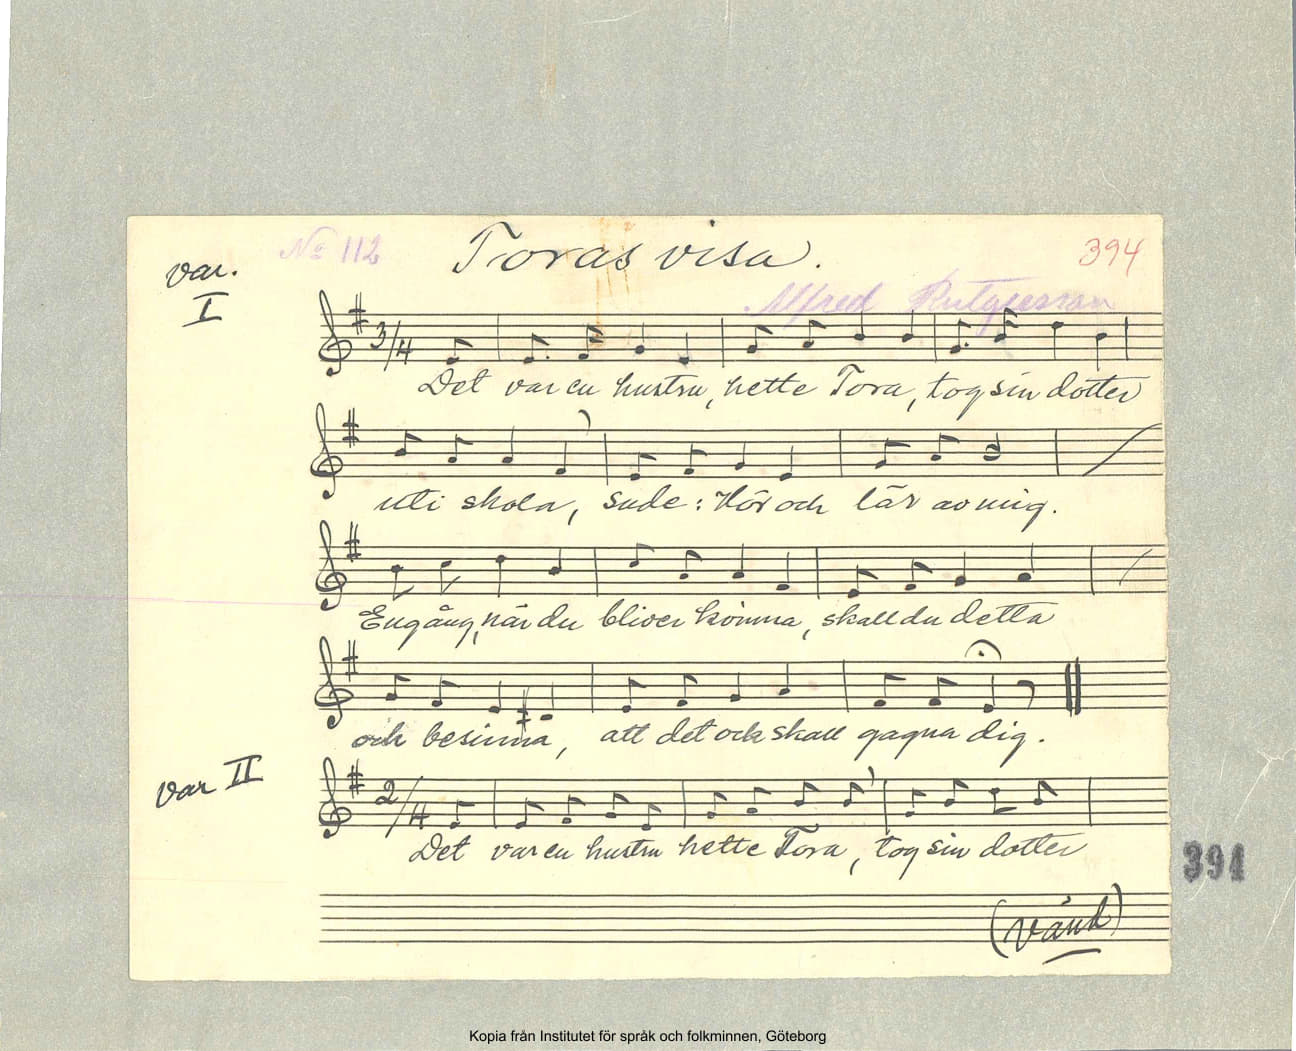 No 112
Toras visa.
394
var.
I
Alfred Rutgersson
3/4
Det var en hustru, hette Tora, tog sin dotter
uti skola, sade: Hör och lär av mig.
En gång, när du bliver kvinna, skall du detta
och besinna, att det ock skall gagna dig.
var II
2/4
Det var en hustru hette Tora, tog sin dotter
394
(Vänd)
Kopia från Institutet för språk och folkminnen, Göteborg